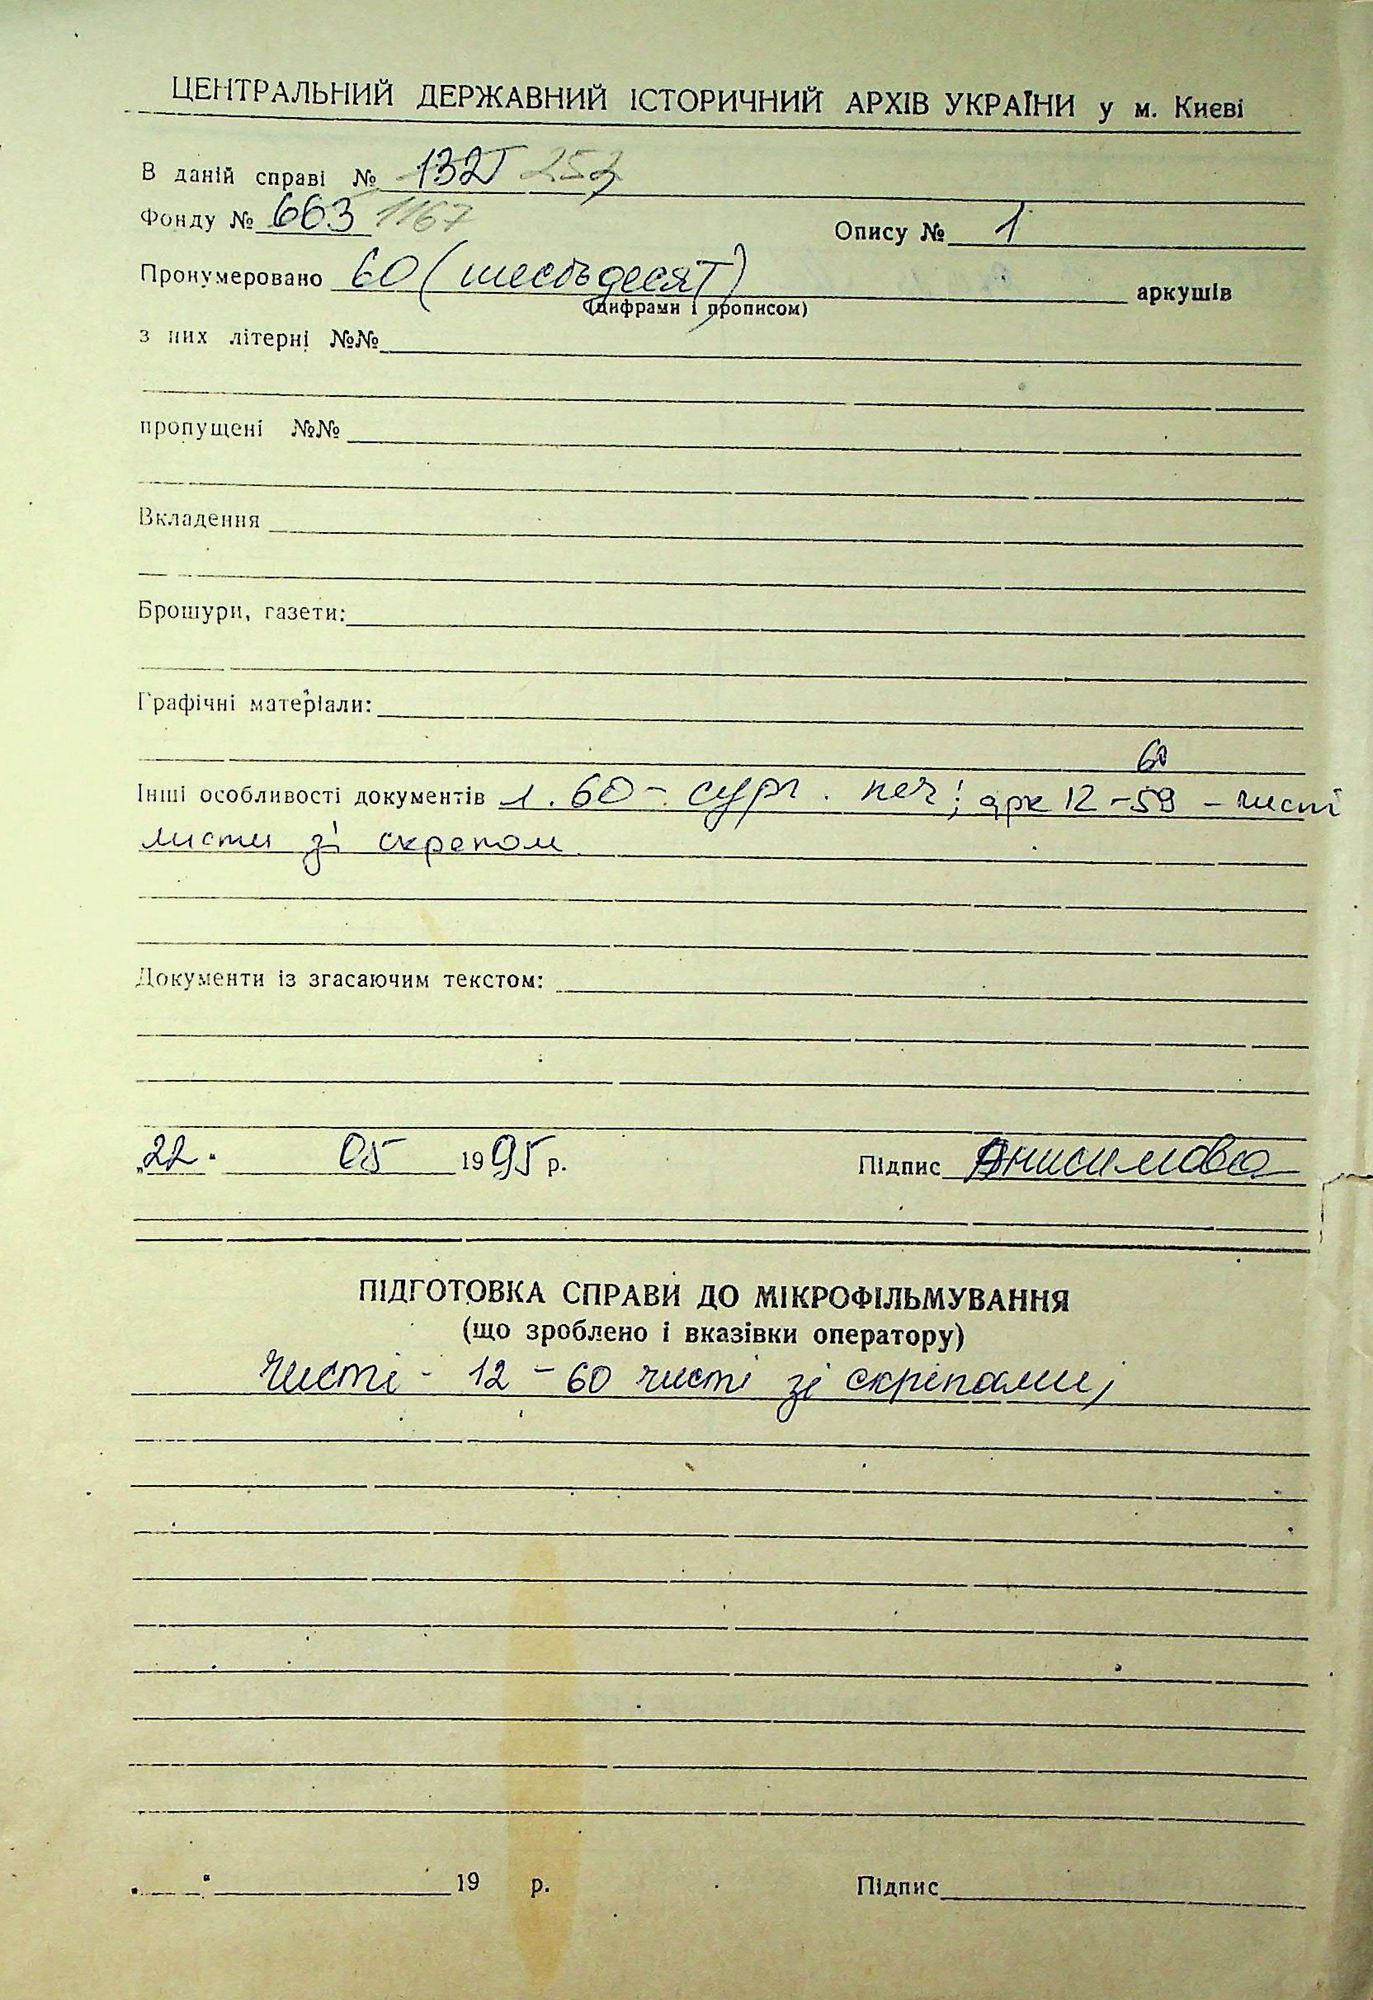 ЦЕНТРАЛЬНИЙ ДЕРЖАВНИЙ ІСТОРИЧНИЙ АРХІВ УКРАЇНИ у м. Києві
В даній справі №
Фонду № 663 1167 Опису № 1
Пронумеровано 60 (шестьдесят) аркушів
(цифрами і прописом)
з них літерні №№
пропущені №№
Вкладення
Брошури, газети:
Графічні матеріали:
60
Інші особливості документів л. 60 - сург. печ; арк 12-59 - чисті
листи зі скрепом
Документи із згасаючим текстом:
„22" 05 1995 р. Підпис Анисимова
ПІДГОТОВКА СПРАВИ ДО МІКРОФІЛЬМУВАННЯ
(що зроблено і вказівки оператору)
Чисті - 12 - 60 чисті зі скріпами;
19 р. Підпис